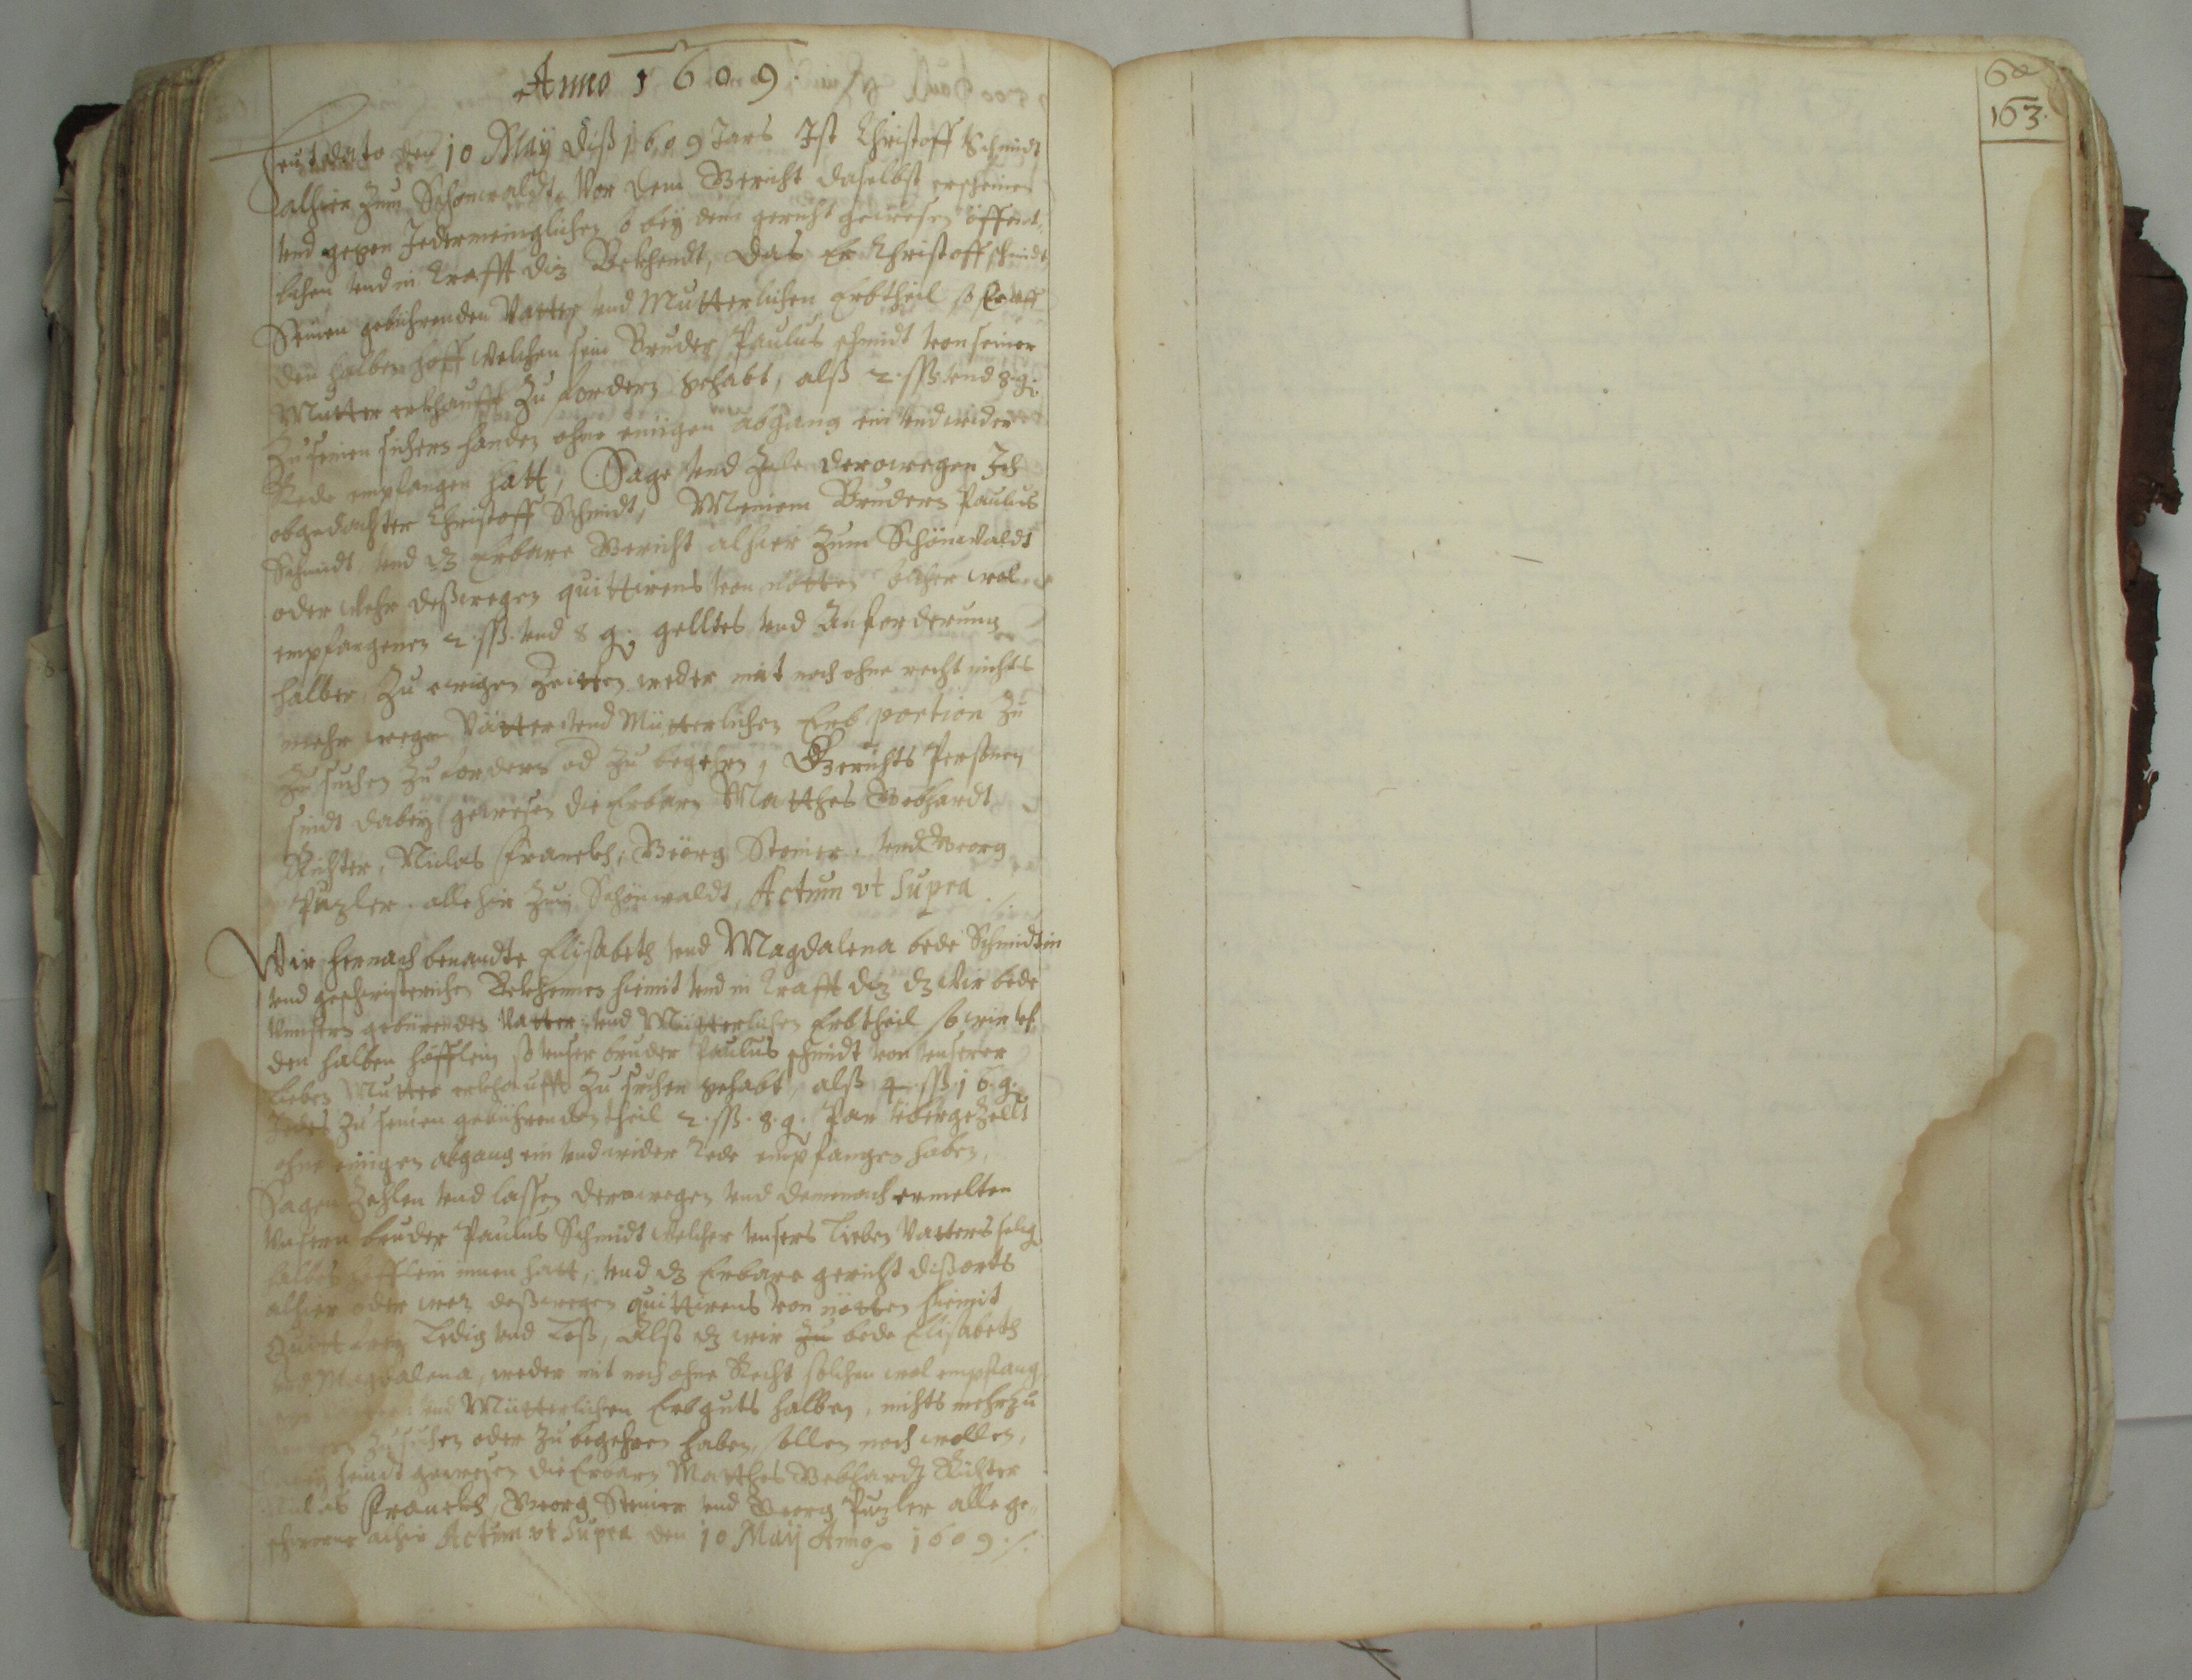 Anno 1609.
Heut dato den 10 Maÿ diß 1609 Jars Ist Christoff Schmidt
alhier zum Schönwaldt, Vor dem Gericht daselbst erscheinen
vnd gegen Jedermeinglichen so beÿ dem gericht gewesen öffent,
lichen vnd in Krafft diz Bekhendt, das Er Christoff schmidt
Seinen gebührenden Vatter vnd Mutterlichen Erbtheil so Er auff
den halben hoff welchen sein Bruder Paulus schmidt von seiner
Mutter erkhaufft zu fordern gehabt, alß 2. ßß vnd 8 g.
zu seinen sichern handen ohne einigen abgang ein vnd wider
Rede empfangen hatt, Sage vnd Zele derowegen Ich
obgedachter Christoff Schmidt, Meinem Brudern Paulus
Schmidt, vnd dz Erbare Gericht alhier zum Schönwaldt
oder Wehr deßwegen quittirens von nötten solcher wol
empfangenen 2. ßß. vnd 8 g. gelltes vnd Anforderung
halber, zu ewigen Zeitten weder mit noch ohne recht nichts
mehr wegen Vätter vnd Mütterlichen Erb portion zu
zu suchen zu fordern od zu begehrn, Gerichts Personen
sindt dabeÿ gewesen die Erbarn Matthes Gebhardt
Richter, Niclas Franckh, Georg Steiner, vnd Georg
Puzler. allehir zum Schönwaldt, Actum vt Supra
Wir hernach benandte Elisabeth vnd Magdalena bede Schmidtin
vnd geschwisterichen Bekhennen hiemit vnd in Krafft diz dz Wir bede
Vnnsern gebürenden Vatter vnd Mütterlichen Erbtheil so wir vf
den halben höfflein so vnser bruder Paulus schmidt von vnserer
lieben Mutter erkhaufft zu suchen gehabt, alß 4. ßß. 16. g.
Jedes zu seinen gebührenden theil 2. ßß. 8. g. Par übergezellt
ohne einigen abgang ein vnd wider Rede empfangen haben,
Sagen Zehlen vnd lassen derowegen vnd demnach ermelten
Vnsern bruder Paulus Schmidt welcher vnsers lieben Vatters selig
halbes höfflein innen hatt, vnd dz Erbare gericht diß orts
alhier oder wer deßwegen quittirens von nötten hiemit
Quitt freÿ Ledig vnd Loß, Also dz wir zu bede Elisabeth
vnd Magdalena, weder mit noch ohne Recht solchen wol empfang
vnd Mütterlichen Erbguts halben, nichts mehr zu
zu suchen oder zu begehren haben, sollen noch wollen,
seindt gewesen die Erbarn Matthes Gebhardt Richter
Niclas Franckh, Georg Steiner vnd Georg Puzler alle ge,,
schworne alhir Actum vt Supra den 10 Maÿ Anno 1609 ./.
163.